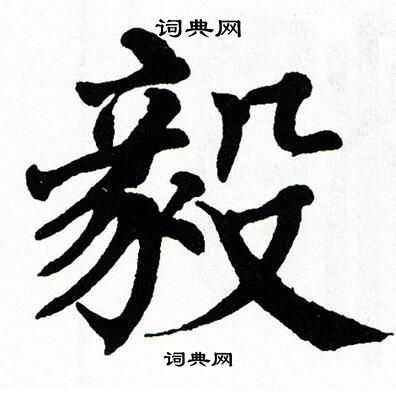 词典网
毅
词典网